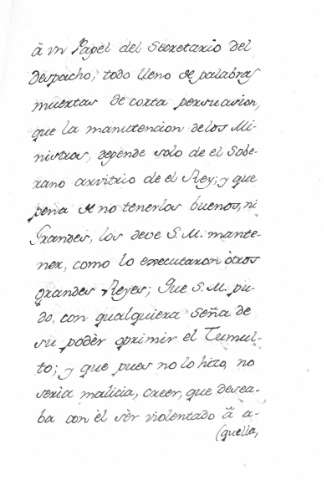 à vn Papel del Secretario del
Despacho; todo lleno de palabras
muertas de corta persuasion,
que la manutencion de los Mi-
nistros, depende solo de el Sobe-
rano arvitrio de el Rey; y que
pena de no tenerlos buenos, ni
Grandes, los deve S. M. mante-
ner, como lo executaron otros
grandes Reyes; Que S. M. pu-
do, con qualquiera seña de
su podèr oprimir el Tumul-
to; y que pues no lo hizo, no
seria malicia, creer, que desea-
ba con èl sèr violentado â a-
(quella,